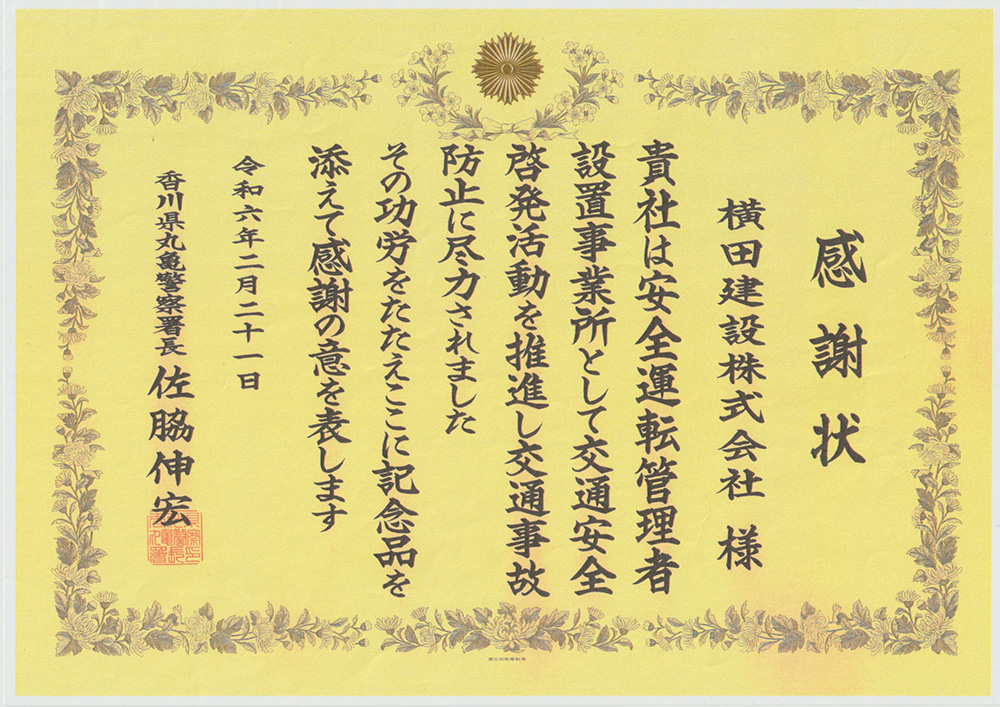 感謝状
横田建設株式会社 様
貴社は安全運転管理者
設置事業所として交通安全
啓発活動を推進し交通事故
防止に尽力されました
その功労をたたえここに記念品を
添えて感謝の意を表します
令和六年二月二十一日
香川県丸亀警察署長 佐脇伸宏